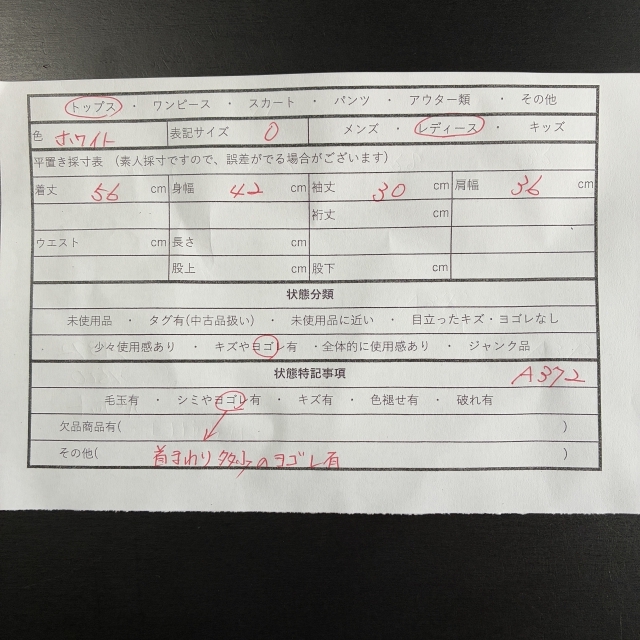 トップス ・ ワンピース ・ スカート ・ パンツ ・ アウター類 ・ その他
色 ホワイト 表記サイズ 0 メンズ ・ レディース ・ キッズ
平置き採寸表 (素人採寸ですので、誤差がでる場合がございます)
着丈 56 cm 身幅 42 cm 袖丈 30 cm 肩幅 36 cm
裄丈 cm
ウエスト cm 長さ cm
股上 cm 股下 cm
状態分類
未使用品 ・ タグ有(中古品扱い) ・ 未使用品に近い ・ 目立ったキズ・ヨゴレなし
少々使用感あり ・ キズやヨゴレ有 ・全体的に使用感あり ・ ジャンク品
状態特記事項 A372
毛玉有 ・ シミやヨゴレ有 ・ キズ有 ・ 色褪せ有 ・ 破れ有
欠品商品有( )
その他( 首まわり多少のヨゴレ有 )